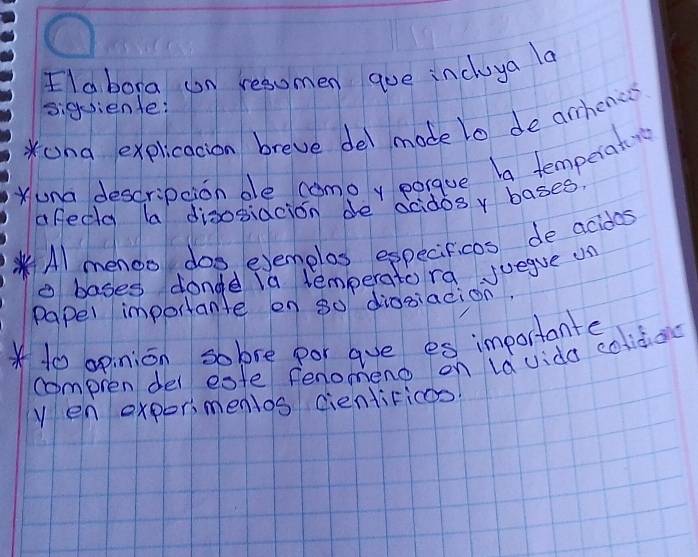 Elabora un resumen que incluya la
siguiente:
*una explicacion breve del modelo de arrhenius.
*una descripción de como y porque la temperatura
afecta la disosiación de acidos y bases.
* Al menos dos ejemplos especificos de acidos
o bases donde la temperatura juegue un
papel importante en su diosiación.
* tu opinión sobre por que es importante
comprender este fenomeno en la vida cotidiana
y en experimentos cientificos.